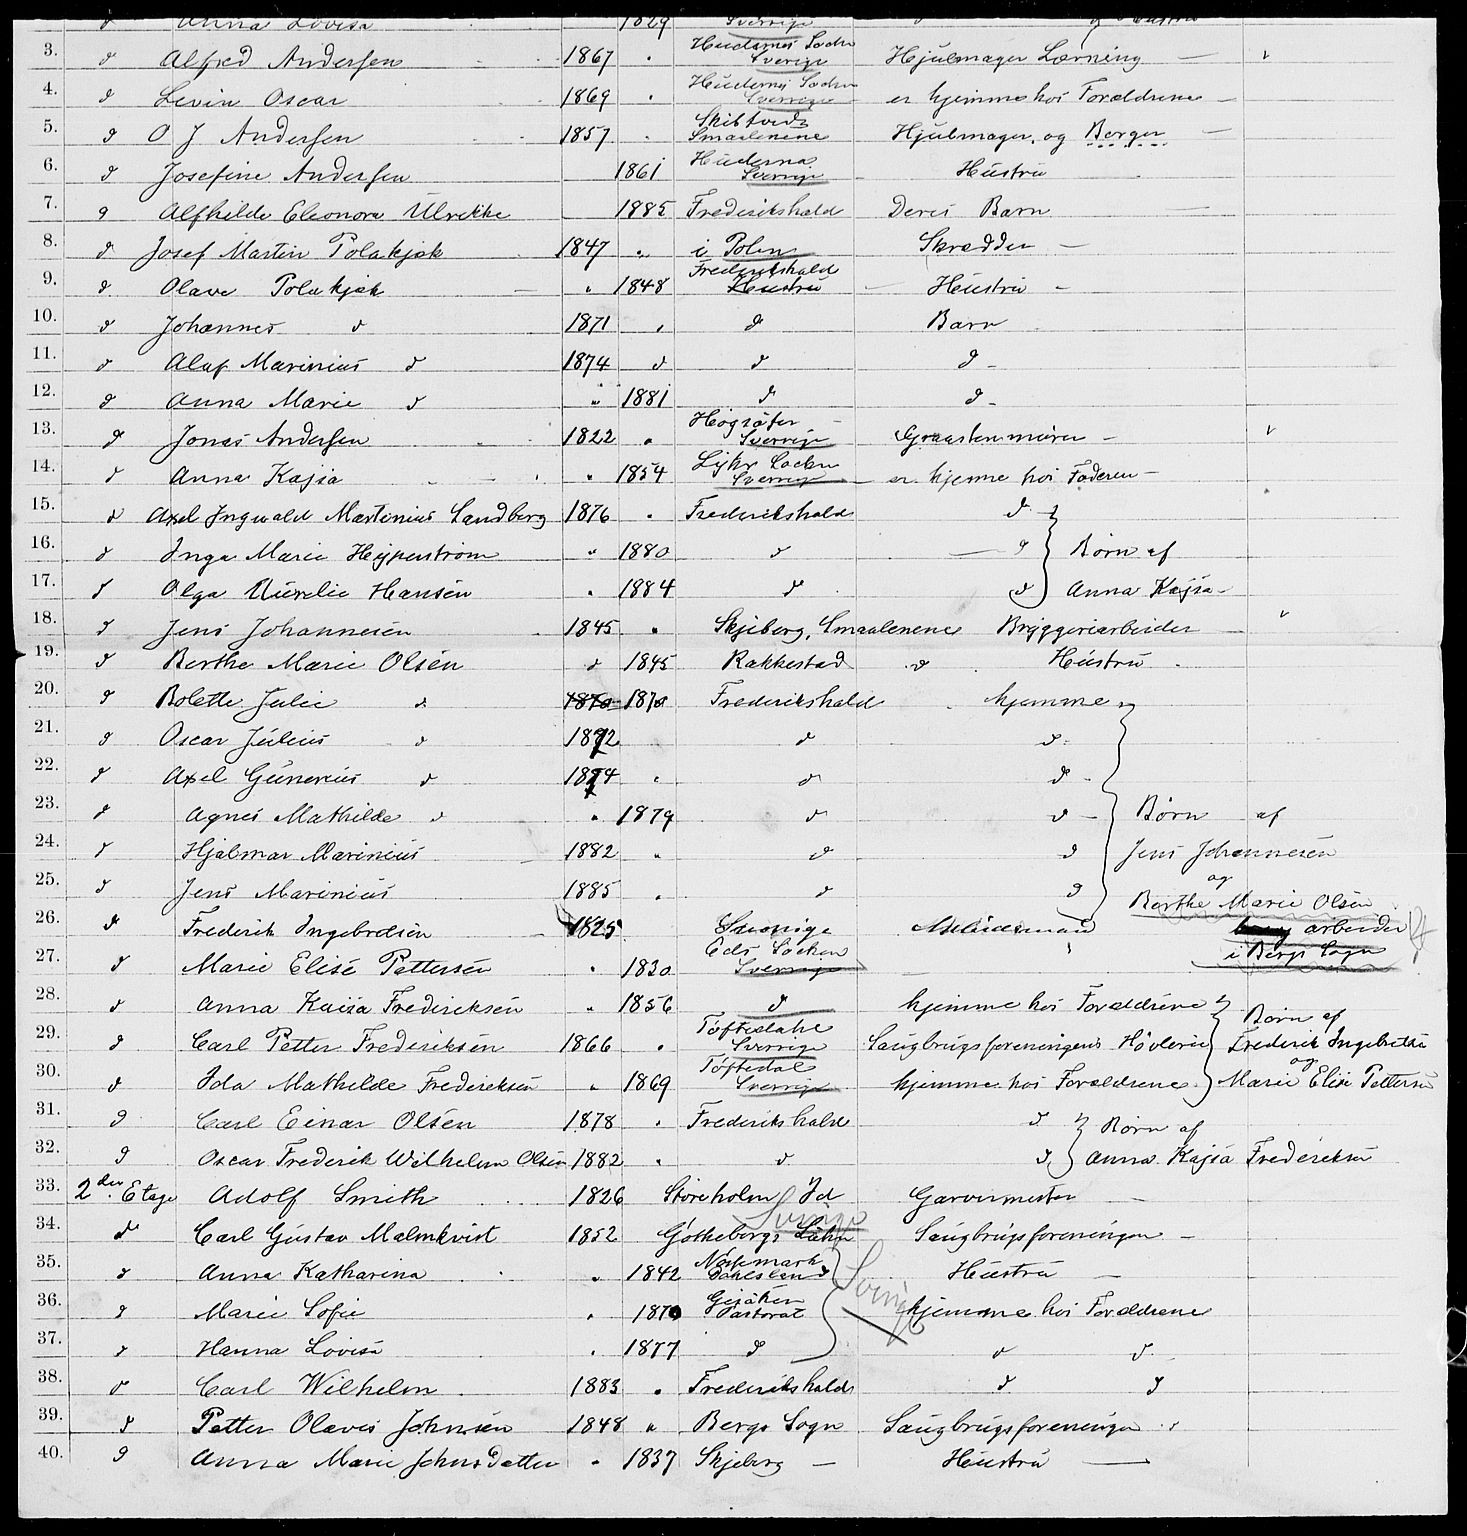 d Anna Lovisa 1829 Sverrige Hustru
3. d Alfred Andersen 1867 " Sverige Hjulmager Lærning
4. d Levin Oscar 1869 " Sverrige er hjemme hos Forældrene
5. d O J Andersen 1857 " Skibtvedt Smaalenene Hjulmager og Borger
6. d Josefine Andersen 1861 Sverrige Hustru
7. d Alfhilde Eleonora Ulrikke 1885 Frederikshald Deres Barn
8. d Josef Martin Polakjak 1847 " i Polen Skrædder
9. d Olava Polakjak " 1848 Frederikshald Hustru Hustru
10. d Johannes d 1871 " d Barn
11. d Alaf Marinius d 1874 d d d
12. d Anna Marie d " 1881 d d
13. d Jonas Andersen 1822 " Høgsäter Sverrige Graastenmurer
14. d Anna Kajsa " 1854 Sverrige er hjemme hos Faderen
15. d Axel Ingvald Martinius Sandberg 1876 " Frederikshald d
16. d Inga Marie " 1880 d d Børn af
17. d Olga Aurelie Hansen " 1884 d d Anna Kajsa
18. d Jens Johannesen 1845 " Skjeberg, Smaalenene Bryggeriarbeider
19. d Berthe Marie Olsen d 1845 Rakkestad d Hustru
20. d Bolette Julie d 1870 1870 Frederikshald hjemme
21. d Oscar Julius d 1872 d d
22. d Axel Gunerius d 1874 " d d
23. d Agnes Mathilde d " 1879 d d Børn af
24. d Hjalmar Marinius 1882 " d d Jens Johannesen
og
25. d Jens Marinius 1885 " d d Berthe Marie Olsen
26. d Frederik Ingebretsen 1825 Sverrige arbeider
i Bergs Sogn
27. d Marie Elise Pettersen " 1830 Eds Socken Sverrige
28. d Anna Kaisa Frederiksen " 1856 d hjemme hos Forældrene Børn af
29. d Carl Petter Frederiksen 1866 " Töftedahl Sverrige Saugbrugsforeningens Høvleri Frederik Ingebretsen
og
30. d Ida Mathilde Frederiksen " 1869 Töftedal Sverrige hjemme hos Forældrene Marie Elise Pettersen
31. d Carl Einar Olsen 1878 " Frederikshald d Børn af
32. d Oscar Frederik Wilhelm Olsen 1882 " d d Anna Kajsa Frederiksen
33. 2den Etage Adolf Smith 1826 Garvermester
Sverige
34. d Carl Gustav Malmkvist 1852 Götheborgs Lähn Saugbrugsforeningen
35. d Anna Katharina " 1842 Nössemark Dahlsland Sverige Hustru
36. d Marie Sofie " 1870 Pastorat hjemme hos Forældrene
37. d Hanna Lovisa " 1877 d d d
38. d Carl Wilhelm 1883 " Frederikshald d d
39. d Petter Olavis Johnsen 1848 " Bergs Sogn Saugbrugsforeningen
40. d Anna Marie Johnsdatter " 1837 Skjeberg Hustru